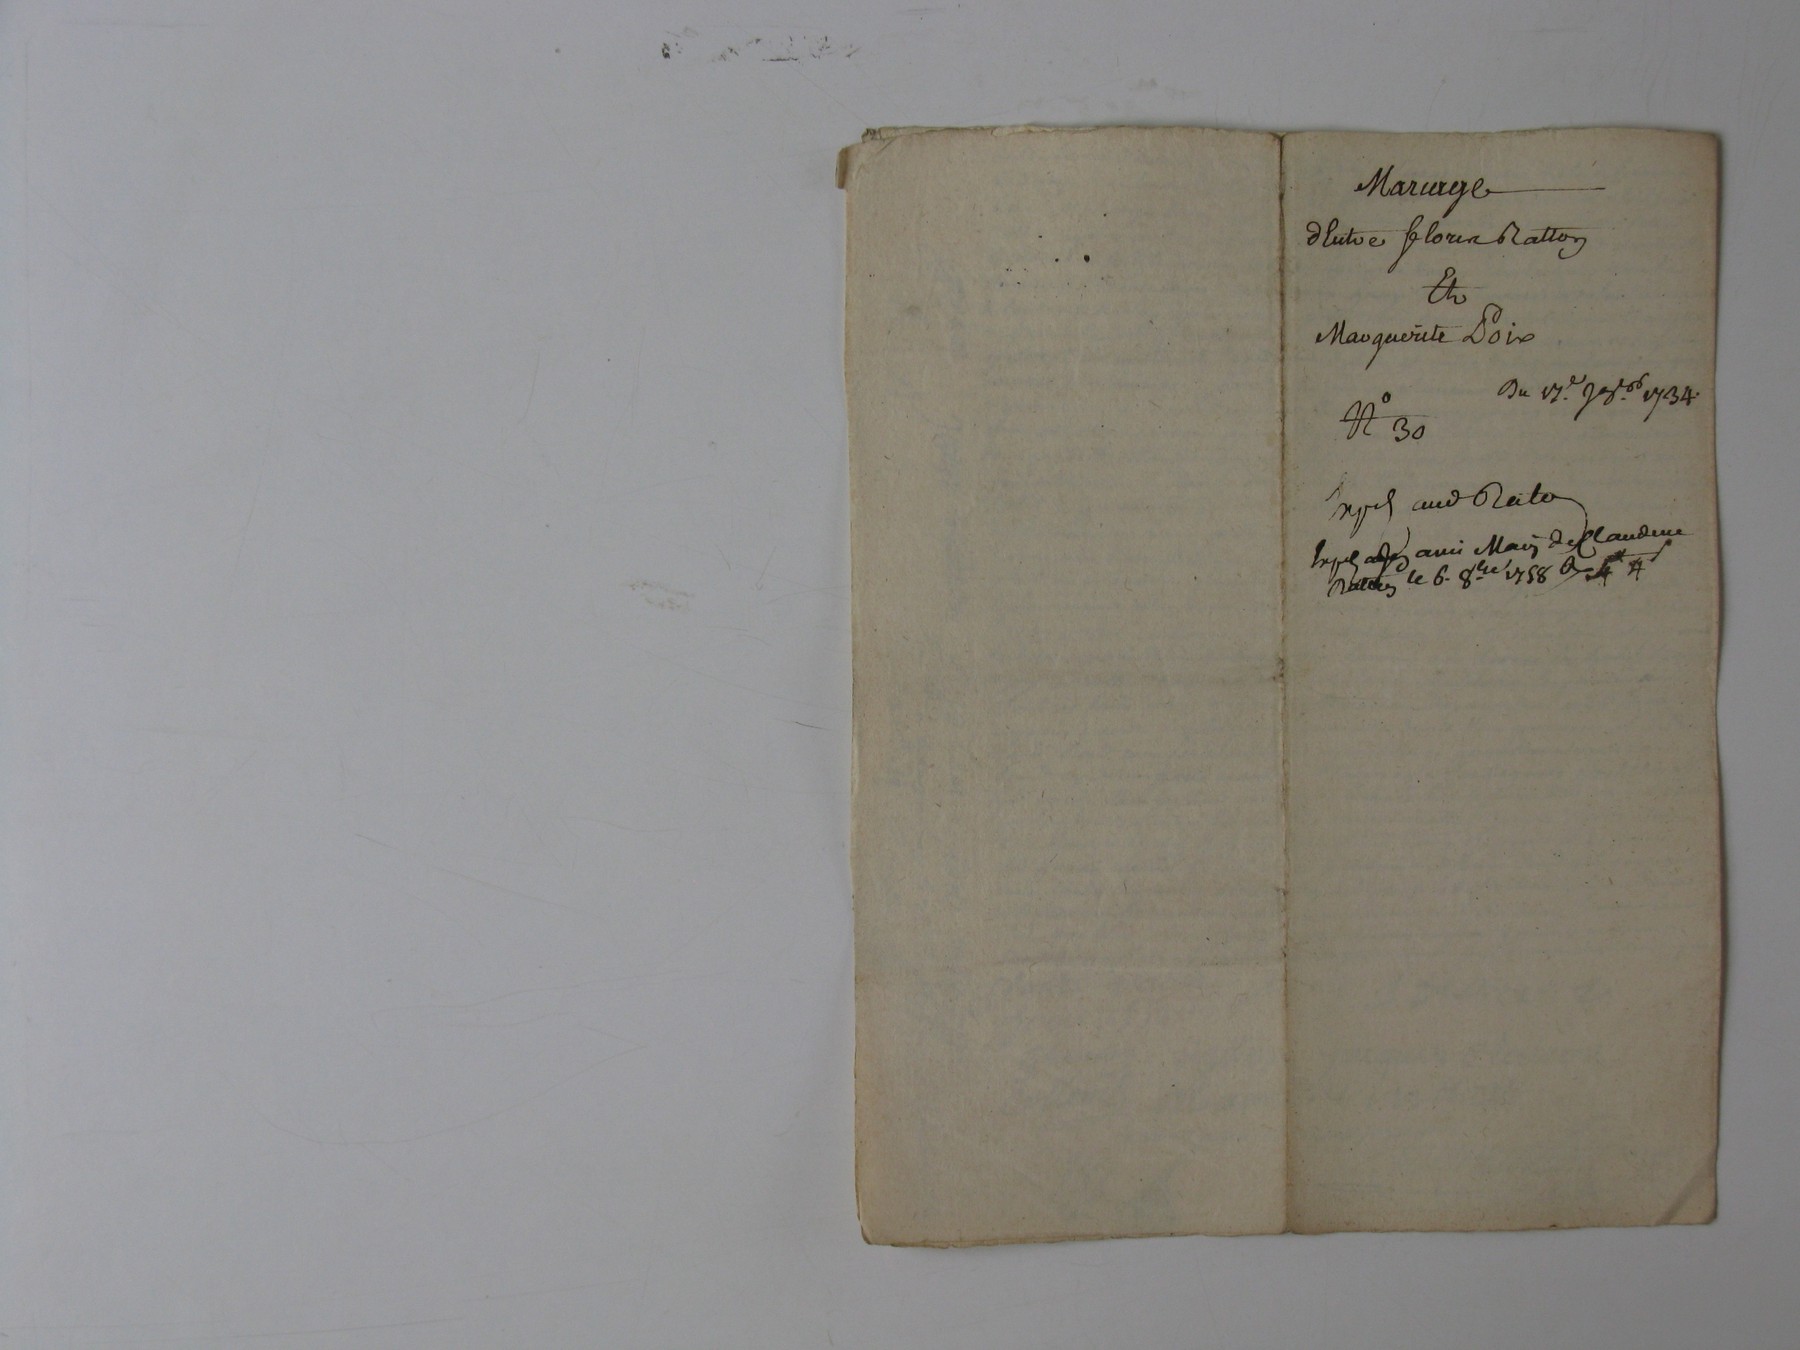 Mariage
d'Entre florin Ratton
Et
Marguerite Poix
Du 17e 1734
N° 30
Expd aud Raton
Expd ami Mary de Claudine
Ratton le 6. 8bre 1758